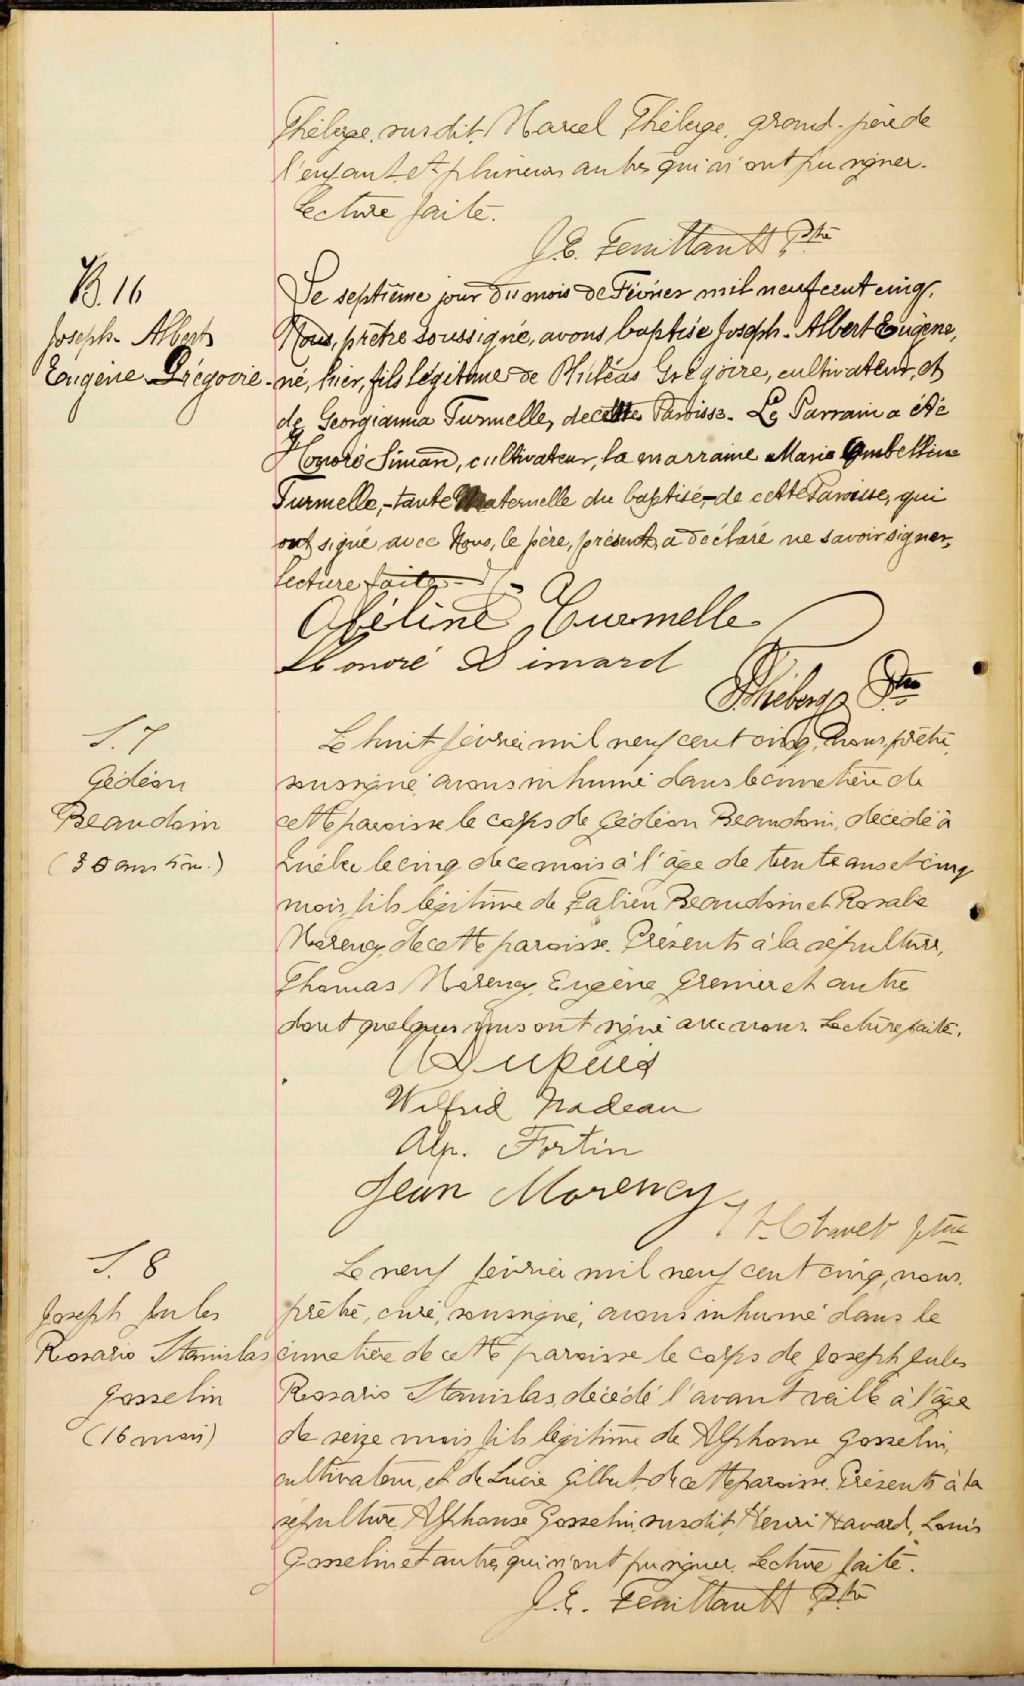 Théberge, susdit, Marcel Théberge, grand-père de
l'enfant et plusieurs autres qui n'ont pu signer.
Lecture faite.
J. E. Feuiltault Ptre
B. 16
Joseph-Albert
Eugène Grégoire-
Le septième jour du mois de Février mil neuf cent cinq,
Nous, prêtre soussigné, avons baptisé Joseph-Albert Eugène,
né, hier, fils légitime de Philéas Grégoire, cultivateur, et
de Georgianna Turmelle, de cette Paroisse. Le Parrain a été
Honoré Simard, cultivateur, la marraine Marie Ombelline
Turmelle,-tante Maternelle du baptisé,-de cette Paroisse, qui
ont signé avec Nous, le père, présent, a déclaré ne savoir signer,
lecture faite-
Turmelle
Honoré Simard
Théberge Ptre
S. 7
Gédéon
Beaudoin
(30 ans 5 m.)
Le huit février mil neuf cent cinq, nous, prêtre,
soussigné, avons inhumé dans le cimetière de
cette paroisse le corps de Gédéon Beaudoin, décédé à
Québec le cinq de ce mois à l'âge de trente ans et cinq
mois, fils légitime de Fabien Beaudoin et Rosalie
Morency, de cette paroisse. Présents à la sépulture,
Thomas Morency, Eugène Grenier et autres
dont quelques uns ont signé avec nous. Lecture faite.
Dupuis
Wilfrid Nadeau
Alp. Fortin
Jean Morency
ptre
S. 8
Joseph Jules
Rosario Stanislas
Gosselin
(16 mois)
Le neuf février mil neuf cent cinq, nous,
prêtre, curé, soussigné, avons inhumé dans le
cimetière de cette paroisse le corps de Joseph Jules
Rosario Stanislas, décédé l'avant veille à l'âge
de seize mois, fils légitime de Alphonse Gosselin,
cultivateur, et de Lucie Gilbert, de cette paroisse. Présents à la
sépulture, Alphonse Gosselin, susdit, Henri Havard, Louis
Gosselin et autres qui n'ont pu signer. Lecture faite.
J. E. Feuiltault Ptre